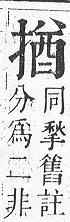 揂
同揫舊註
分爲二非